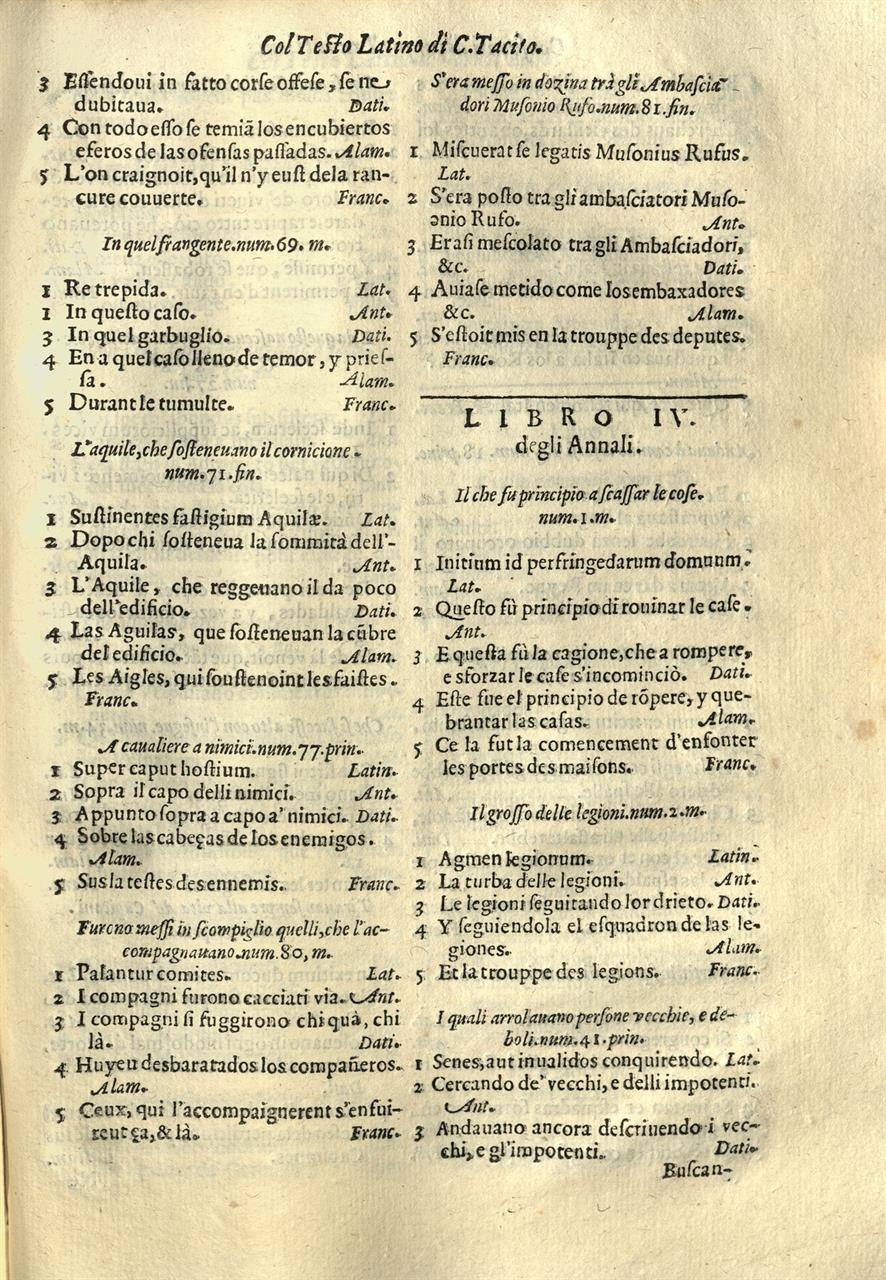 Col Teſto Latino di C. Tacito.
3 Eſſendoui in fatto corſe offeſe, ſe ne
dubitaua. Dati.
4 Con todo eſſo ſe temiã los encubiertos
eferos de las ofenſas paſſadas. Alam.
5 L'on craignoit, qu'il n'y euſt de la ran-
cure couuerte. Franc.
In quel frangente. num. 69. m.
1 Re trepida. Lat.
1 In queſto caſo. Ant.
3 In quel garbuglio. Dati.
4 En a quel caſo lleno de temor, y prieſ-
ſa. Alam.
5 Durant le tumulte. Franc.
L'aquile, che ſoſteneuano il cornicione.
num. 71. fin.
1 Suſtinentes faſtigium Aquilæ. Lat.
2 Dopo chi ſoſteneua la ſommità dell'-
Aquila. Ant.
3 L'Aquile, che reggeuano il da poco
dell'edificio. Dati.
4 Las Aguilas, que ſoſteneuan la cũbre
del edificio. Alam.
5 Les Aigles, qui ſouſtenoint les faiſtes.
Franc.
A caualiere a nimici. num. 77. prin.
1 Super caput hoſtium. Latin.
2 Sopra il capo delli nimici. Ant.
3 Appunto ſopra a capo a' nimici. Dati.
4 Sobre las cabeças de los enemigos.
Alam.
5 Sus la teſtes des ennemis. Franc.
Furono meſſi in ſcompiglio quelli, che l'ac-
compagnauano. num. 80, m.
1 Palantur comites. Lat.
2 I compagni furono cacciati via. Ant.
3 I compagni ſi fuggirono chi quà, chi
là. Dati.
4 Huyeu desbaratados los compañeros.
Alam.
5 Ceux, qui l'accompaignerent s'enfui-
rent ça, & là. Franc.
S'era meſſo in dozina trà gli Ambaſcia-
dori Muſonio Rufo. num. 81. fin.
1 Miſcuerat ſe legatis Muſonius Rufus.
Lat.
2 S'era poſto tra gli ambaſciatori Muſo-
onio Rufo. Ant.
3 Eraſi meſcolato tra gli Ambaſciadori,
&c. Dati.
4 Auiaſe metido come los embaxadores
&c. Alam.
5 S'eſtoit mis en la trouppe des deputes.
Franc.
LIBRO IV.
degli Annali.
Il che fu principio a ſcaſſar le coſe.
num. 1. m.
1 Initium id perfringedarum domuum.
Lat.
2 Queſto fù principio di rouinar le caſe.
Ant.
3 E queſta fù la cagione, che a rompere,
e sforzar le caſe s'incominciò. Dati.
4 Eſte fue el principio de rõpere, y que-
brantar las caſas. Alam.
5 Ce la fut la comencement d'enfonter
les portes des maiſons. Franc.
Il groſſo delle legioni. num. 2. m.
1 Agmen legionum. Latin.
2 La turba delle legioni. Ant.
3 Le legioni ſeguitando lor drieto. Dati.
4 Y ſeguiendola el eſquadron de las le-
giones. Alam.
5 Et la trouppe des legions. Franc.
I quali arrolauano perſone vecchie, e de-
boli. num. 41. prin.
1 Senes, aut inualidos conquirendo. Lat.
2 Cercando de' vecchi, e delli impotenti.
Ant.
3 Andauano ancora deſcriuendo i vec-
chi, e gl'impotenti. Dati.
Buſcan-